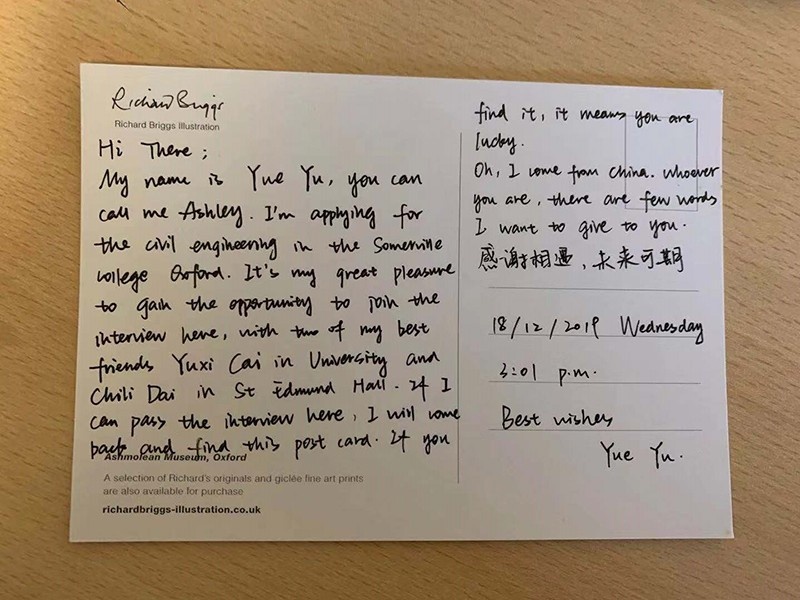 Richard Briggs
Richard Briggs Illustration
Hi There;
My name is Yue Yu, you can
call me Ashley. I'm applying for
the civil engineering in the Somerville
college Oxford. It's my great pleasure
to gain the opportunity to join the
interview here, with two of my best
friends Yuxi Cai in University and
Chili Dai in St Edmund Hall. If I
can pass the interview here, I will come
back and find this post card. If you
Ashmolean Museum, Oxford
A selection of Richard's originals and giclée fine art prints
are also available for purchase
richardbriggs-illustration.co.uk
find it, it means you are
lucky.
Oh, I come from China. whoever
you are, there are few words
I want to give to you.
感谢相遇，未来可期
18/12/2019 Wednesday
3:01 p.m.
Best wishes
Yue Yu.